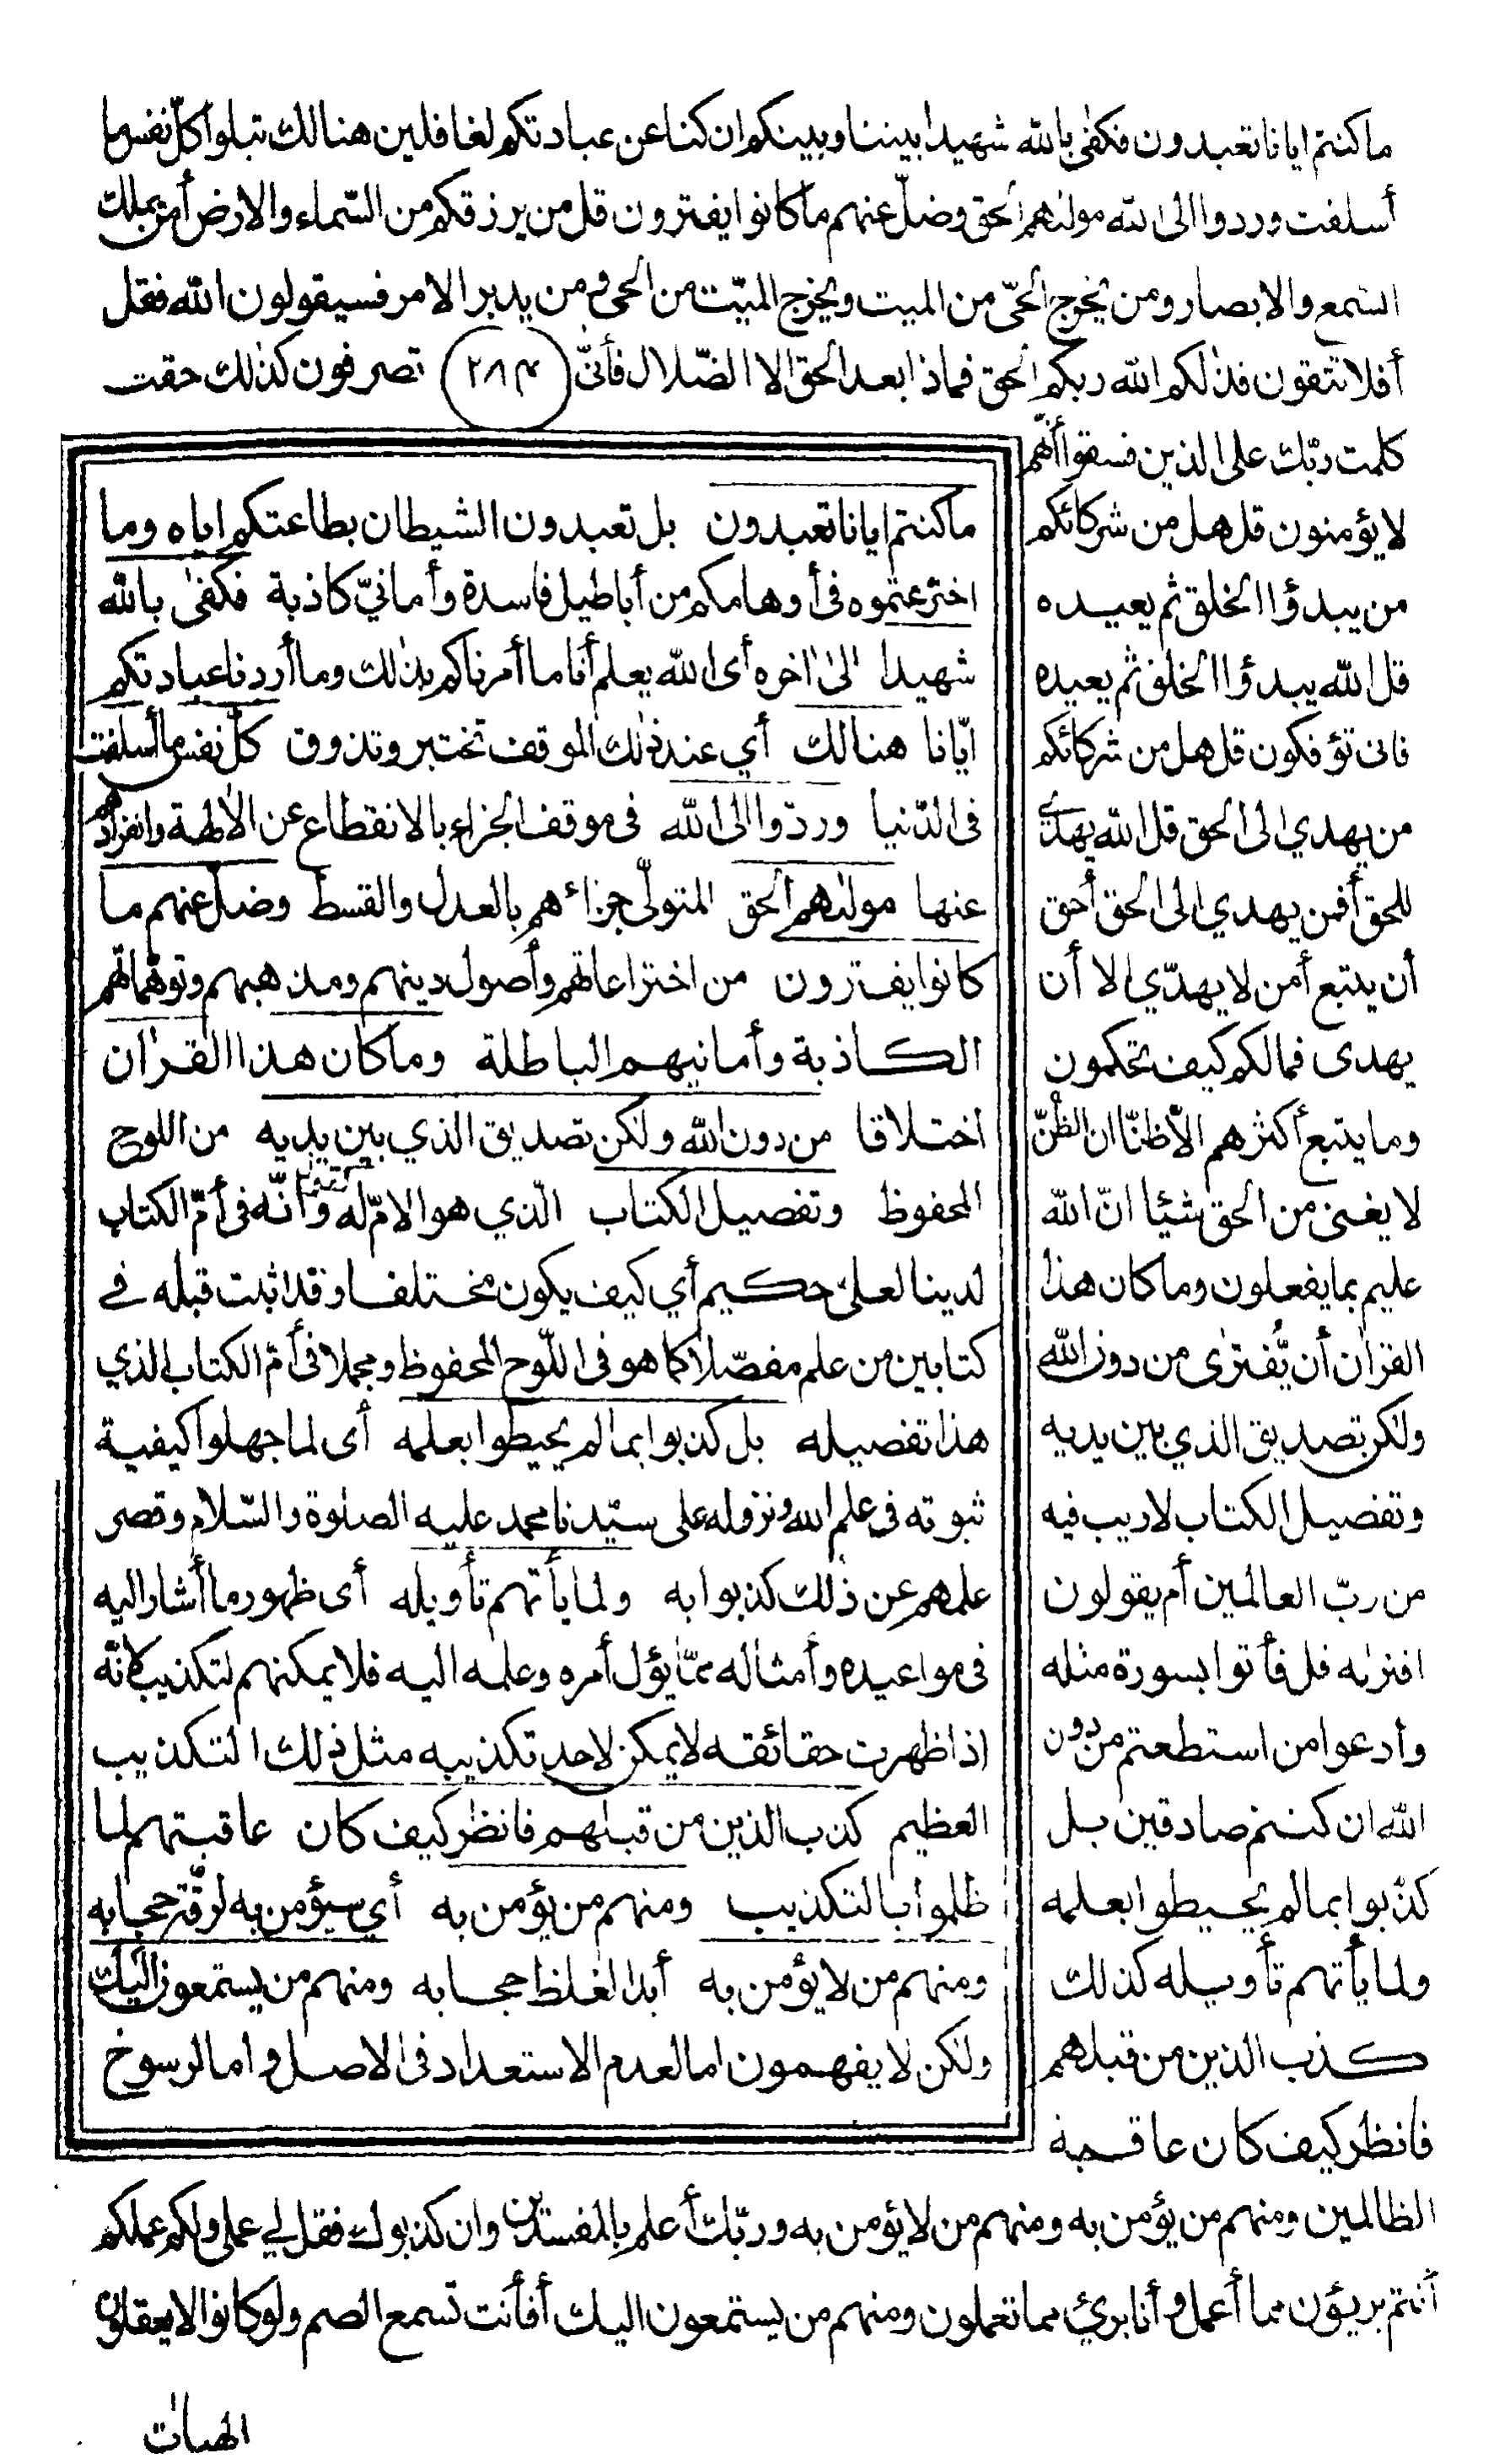 ما كنتم ايانا تعبدون فكفى بالله شهيدا بيننا وبينكم ان كنا عن عبادتكم لغافلين هنالك تبلوا كلّ نفس ما
أسلفت وردوا الى الله مولىٰهم الحق وضلّ عنهم ما كانوا يفترون قل من يرزقكم من السّماء والارض أمن يملك
السّمع والابصار ومن يخرج الحيّ من الميت ويخرج الميّت من الحي ومن يدبر الامر فسيقولون الله فقل
أفلا تتقون فذٰلكم الله ربكم الحق فماذا بعد الحق الا الضّلال فأنىّ ٢٨٤ تصرفون كذٰلك حقت
كلمت ربّك على الذين فسقوا أنّهم
لا يؤمنون قل هل من شركائكم
من يبدؤا الخلق ثم يعيده
قل الله يبدؤا الخلق ثم يعيده
فانى تؤفكون قل هل من شركائكم
من يهدي الى الحق قل الله يهدي
للحق أفمن يهدي الى الحق أحق
أن يتبع أمن لا يهدّي الا أن
يهدى فمالكم كيف تحكمون
وما يتبع أكثرهم الاّ ظنّا ان الظّنّ
لا يغنى من الحق شيئا انّ الله
عليم بما يفعلون وما كان هذا
القراٰن أن يُّفترى من دون الله
ولٰكن تصديق الذي بين يديه
وتفصيل الكتاب لا ريب فيه
من ربّ العالمين أم يقولون
افترىٰه قل فأتوا بسورة مثله
وادعوا من استطعتم من دون
الله ان كنتم صادقين بل
كذّبوا بما لم يحيطوا بعلمه
ولما يأتهم تأويله كذلك
كذب الذين من قبلهم
فانظر كيف كان عاقبة
ما كنتم ايانا تعبدون بل تعبدون الشيطان بطاعتكم اياه وما
اخترعتموه فى أوهامكم من أباطيل فاسدة وأمانيّ كاذبة فكفىٰ بالله
شهيدا الىٰ اٰخره أى الله يعلم أنا ما أمرناكم بذٰلك وما أردنا عبادتكم
ايّانا هنالك أي عند ذٰلك الموقف تختبر وتذوق كلّ نفس ما أسلفت
فى الدّنيا وردّوا الى الله فى موقف الجزاء بالانقطاع عن الاٰلهة وانفرادهم
عنها مولىٰهم الحق المتولّى جزاءهم بالعدل والقسط وضلّ عنهم ما
كانوا يفترون من اختراعاتهم وأصول دينهم ومذهبهم وتوهّماتهم
الكاذبة وأمانيهم الباطلة وما كان هذا القراٰن
اختلاقا من دون الله ولٰكن تصديق الذي بين يديه من اللوح
المحفوظ وتفصيل الكتاب الّذي هو الامّ له وانّه فى أمّ الكتاب
لدينا لعليّ حكيم أي كيف يكون مختلفا وقد اثبت قبله في
كتابين من علم مفصّلا كما هو فى اللّوح المحفوظ ومجملا فى أمّ الكتاب الذي
هذا تفصيله بل كذبوا بما لم يحيطوا بعلمه أى لما جهلوا كيفية
ثبوته فى علم الله ونزوله على سيّدنا محمد عليه الصلٰوة والسّلام وقصر
علمهم عن ذٰلك كذبوا به ولما يأتهم تأويله أى ظهور ما أشار اليه
فى مواعيده وأمثاله ممّا يؤل أمره وعلمه اليه فلا يمكنهم التكذيب لانه
اذا ظهرت حقائقه لا يمكن لاحد تكذيبه مثل ذٰلك التكذيب
العظيم كذب الذين من قبلهم فانظر كيف كان عاقبتهم لما
ظلموا بالتكذيب ومنهم من يؤمن به أي سيؤمن به لرقّة حجابه
ومنهم من لا يؤمن به أبدا لغلظ حجابه ومنهم من يستمعون اليك
ولٰكن لا يفهمون اما لعدم الاستعداد فى الاصل واما لرسوخ
الظالمين ومنهم من يؤمن به ومنهم من لا يؤمن به وربّك أعلم بالمفسدين وان كذبوك فقل لي عملي ولكم عملكم
أنتم بريؤن مما أعمل وأنا بريئ مما تعملون ومنهم من يستمعون اليك أفأنت تسمع الصم ولو كانوا لا يعقلون
الهيات